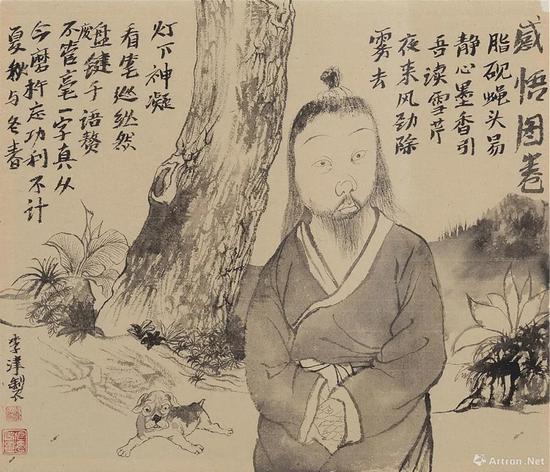 感悟图卷
脂砚蝇头易
静心墨香引
吾读雪芹
夜来风劲除
雾去
灯下神凝
看笔 然
盘键千语赘
废
不管毫一字真从
今磨杵忘功利不计
夏秋与冬春
李津製
Artron.Net